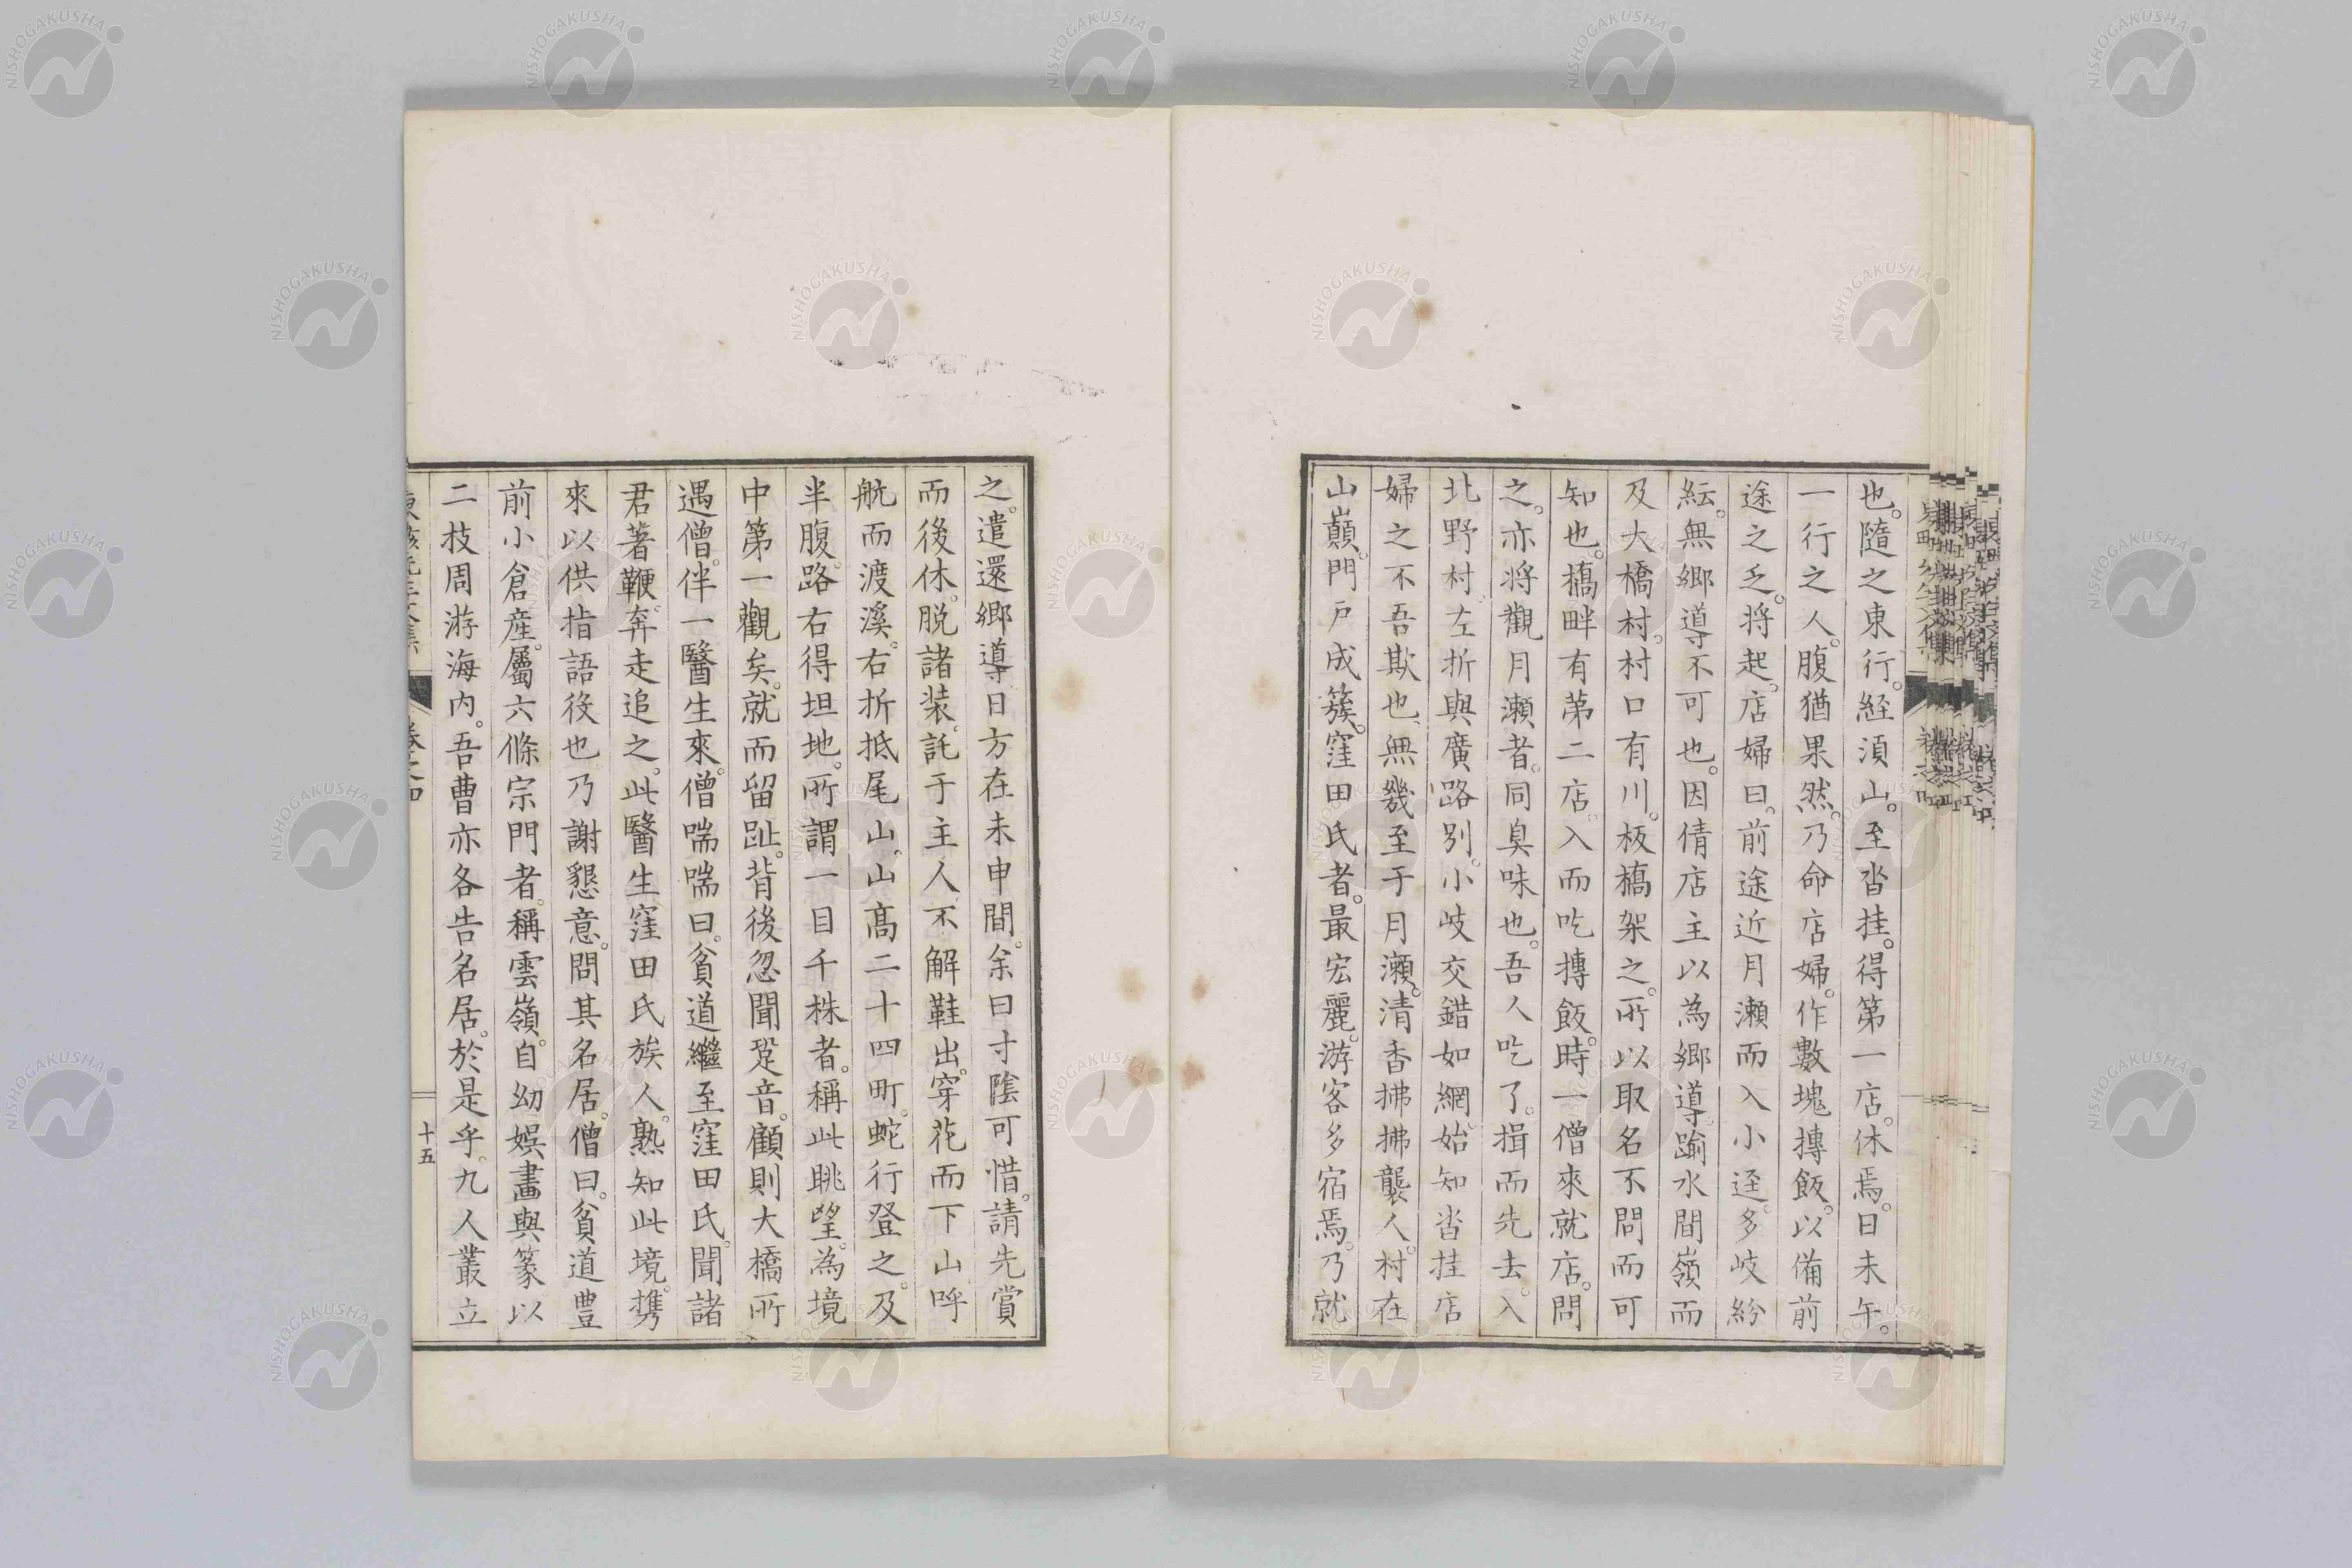 也。隨之東行。経湏山。至沓挂。得第一店。休焉。日未午。
一行之人。腹猶果然。乃命店婦。作數塊摶飯。以備前
途之乏。将起。店婦曰。前途近月瀬而入小逕。多岐紛
紜。無郷導不可也。因倩店主以為郷導。踰水間嶺而
及大橋村。村口有川。板橋架之。所以取名不問而可
知也。橋畔有第二店。入而吃摶飯。時一僧來就店。問
之。亦将觀月瀬者。同臭味也。吾人吃了。揖而先去。入
北野村。左折與廣路别。小岐交錯如網。始知沓挂店
婦之不吾欺也。無幾至于月瀬。清香拂拂襲人。村在
山巓。門戸成簇。窪田氏者。最宏麗。游客多宿焉。乃就
之。遣還郷導日方在未申間。余曰寸陰可惜。請先賞
而後休。脱諸装。託于主人。不解鞋出。穿花而下山呼
航而渡溪。右折抵尾山。山高二十四町。蛇行登之。及
半腹。路右得坦地。所謂一目千株者。稱此眺望。為境
中第一觀矣。就而留趾。背後忽聞跫音。顧則大橋所
遇僧。伴一醫生來。僧喘喘曰。貧道繼至窪田氏。聞諸
君著鞭。奔走追之。此醫生窪田氏族人。熟知此境。携
來以供指語後也。乃謝懇意。問其名居。僧曰。貧道豊
前小倉産。屬六條宗門者。稱雲嶺。自幼娯畵與篆以
二枝周游海内。吾曹亦各告名居。於是乎。九人叢立
十五
NISHOGAKUSHA